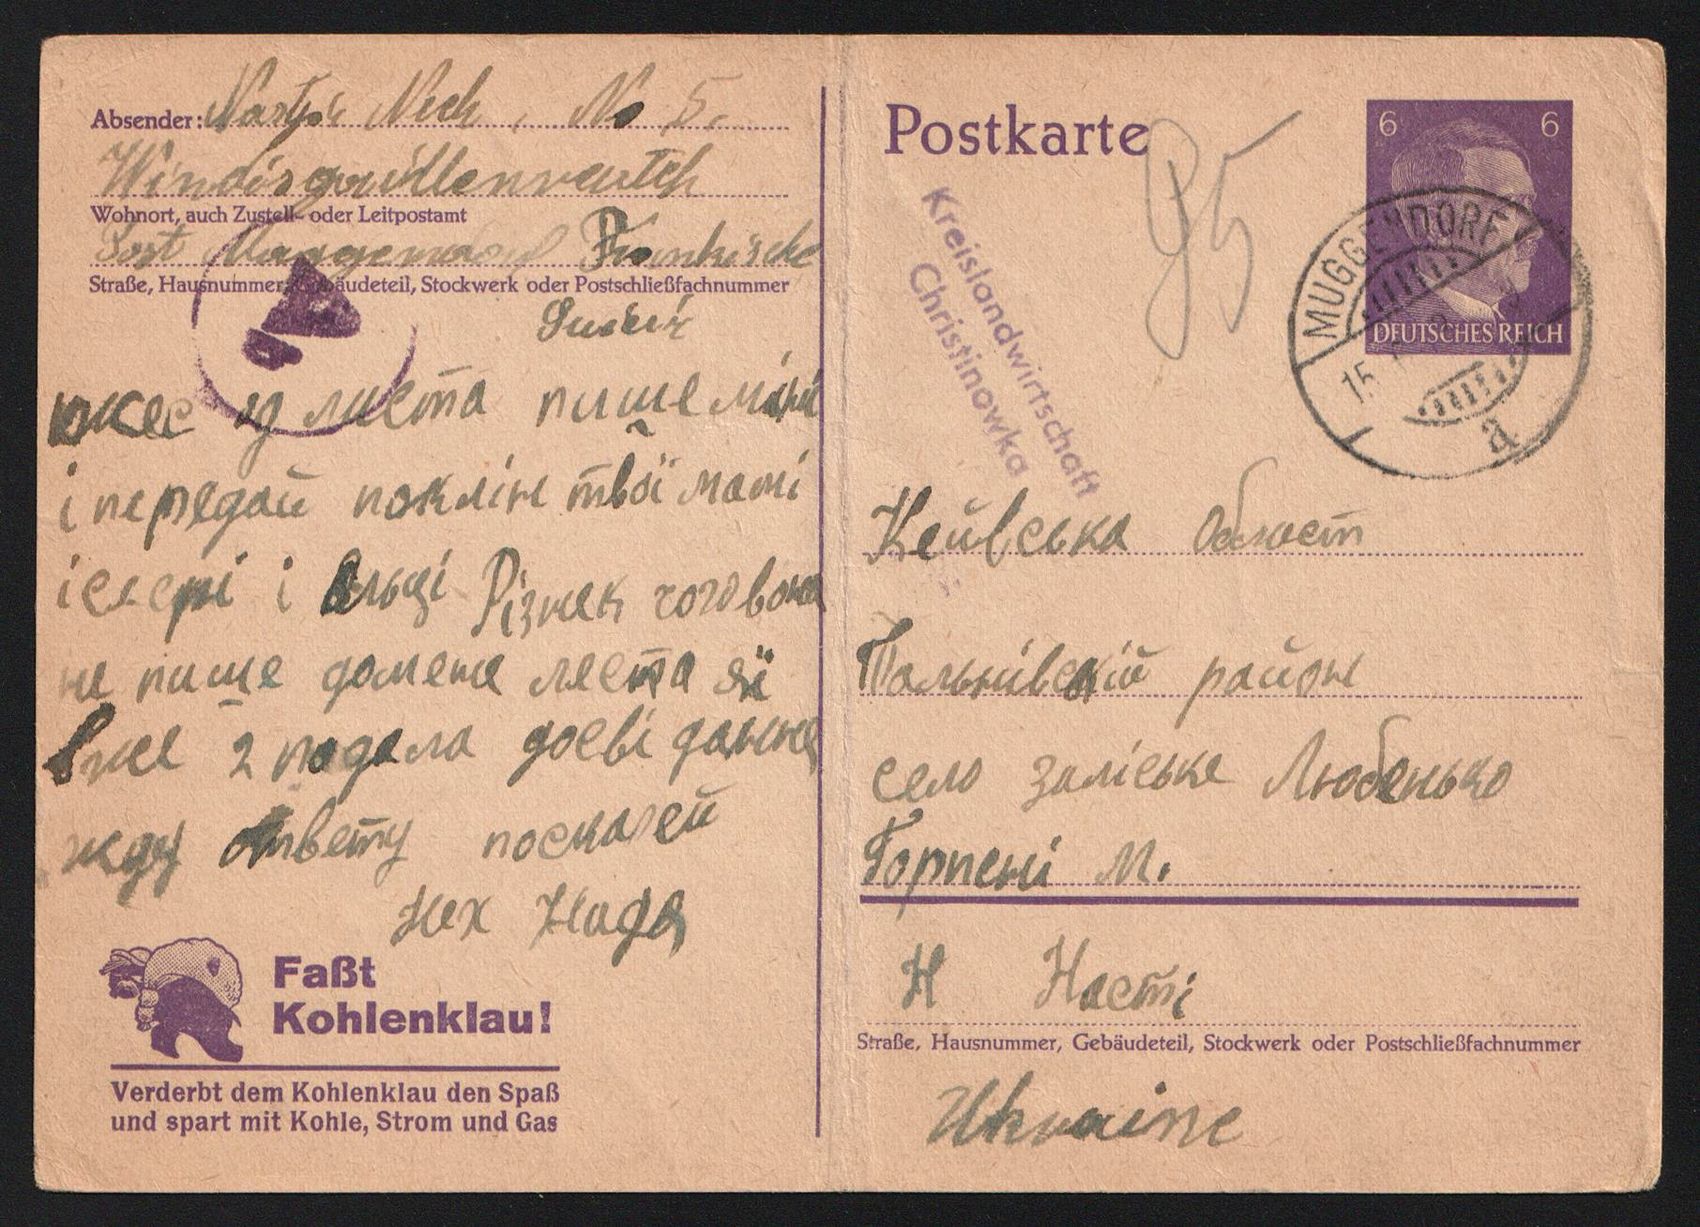 Absender: Nastja Nech, No 5.
Windisgaillenreuth
Wohnort, auch Zustell- oder Leitpostamt
Post Muggendorf Frankische
Straße, Hausnummer, Gebäudeteil, Stockwerk oder Postschließfachnummer
листа пише мині
і передай поклін твої мамі
і Різнек
не пише домене леста я їі
вже 2 подала доеві данне
жду ответу поскарей
Нех Надя
Faßt
Kohlenklau!
Verderbt dem Kohlenklau den Spaß
und spart mit Kohle, Strom und Gas
Postkarte
95
6 6
DEUTSCHES REICH
MUGGENDORF
15.
a
Kreislandwirtschaft
Christinowka
Кейвська Област
Тальнівскій район
село заліське Любенько
Горпені М.
Н Насті
Straße, Hausnummer, Gebäudeteil, Stockwerk oder Postschließfachnummer
Ukraine